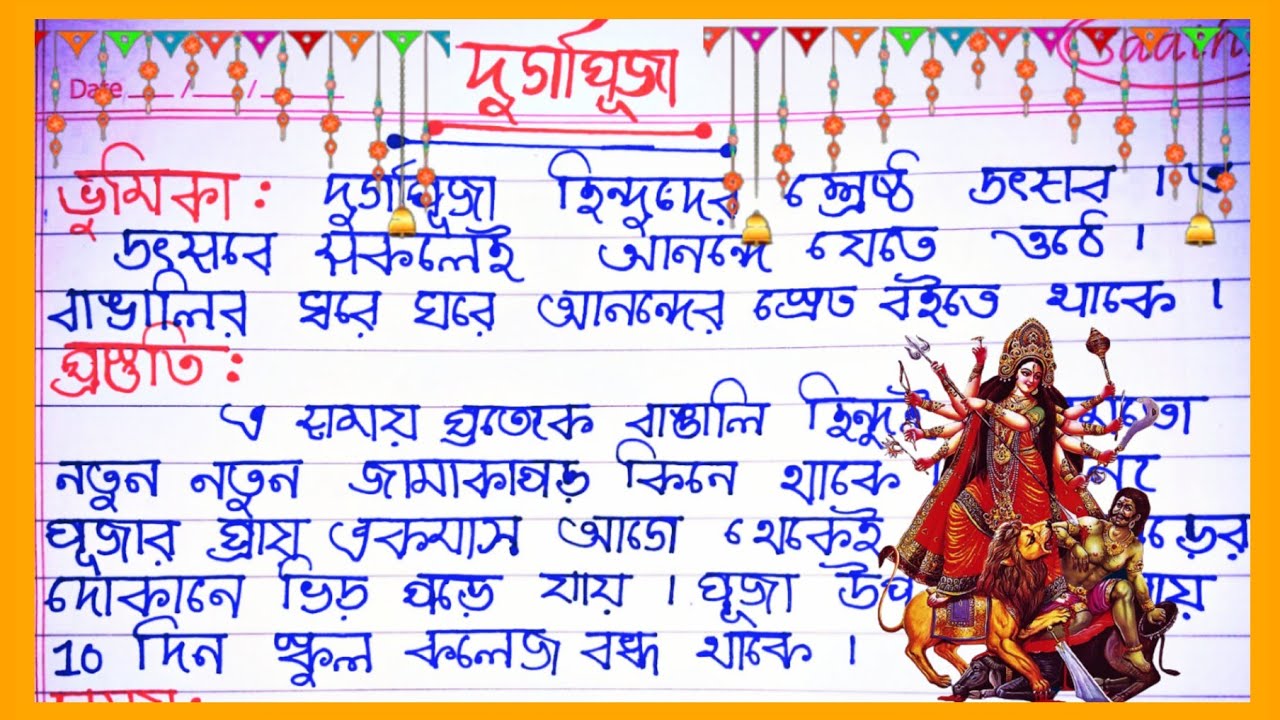 দুর্গাপূজা
Date __/__/____
ভুমিকা: দুর্গাপূজা হিন্দুদের শ্রেষ্ঠ উৎসব । এ
উৎসবে সকলেই আনন্দে মেতে ওঠে ।
বাঙালির ঘরে ঘরে আনন্দের স্রোত বইতে থাকে ।
প্রস্তুতি:
এ সময় প্রত্যেক বাঙালি হিন্দু
নতুন নতুন জামাকাপড় কিনে থাকে
পূজার প্রায় একমাস আগে থেকেই
দোকানে ভিড় পড়ে যায় । পূজা
10 দিন স্কুল কলেজ বন্ধ থাকে ।